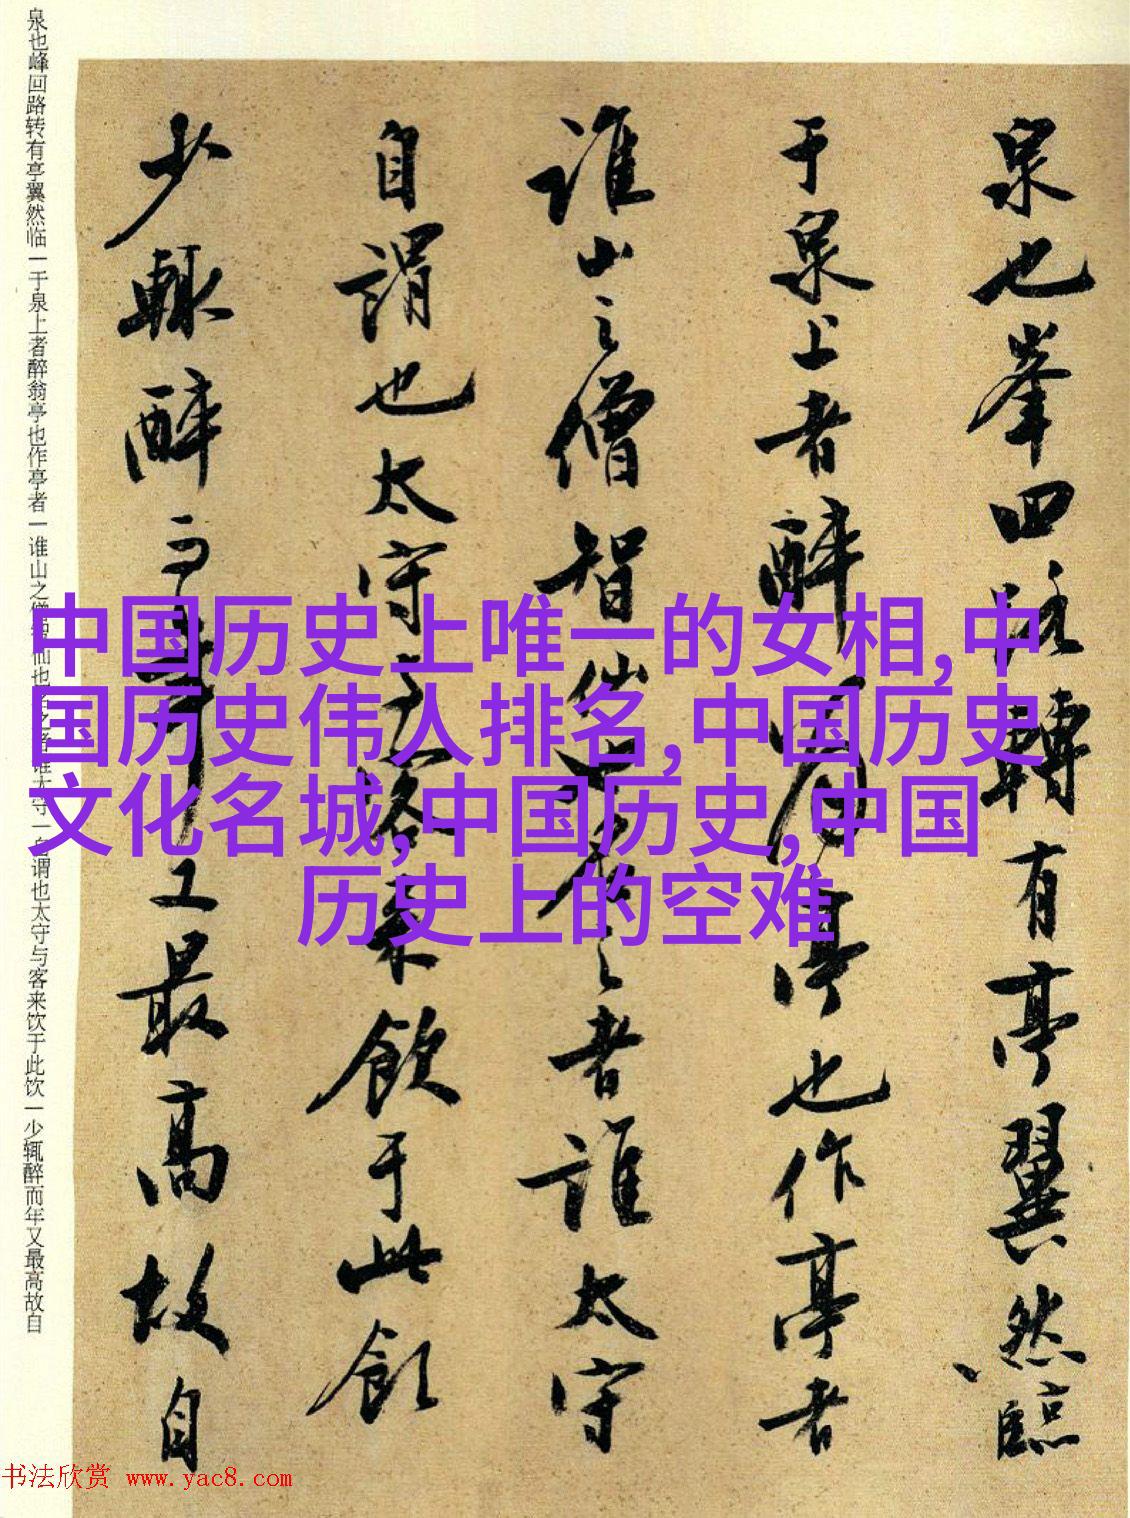 泉也峯回路轉有亭翼然臨
于泉上者醉翁亭也作亭者
誰山之僧智仙也名之者誰太守
自謂也太守与客来飲于此飲
少輒醉而年又最高故自
泉也峰回路转有亭翼然临一于泉上者醉翁亭也作亭者一谁山之僧智仙也名之者谁太守一自谓也太守与客来饮于此饮一少辄醉而年又最高故自
中国历史上唯一的女相,中
国历史伟人排名,中国历史
文化名城,中国历史,中国
历史上的空难
书法欣赏 www.yac8.com